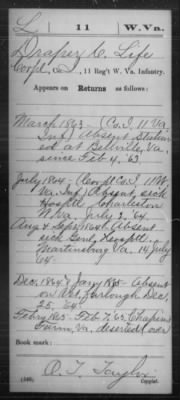 L | 11 | W. Va.
Draper C. Life
Corpl, Co. I, 11 Reg't W. Va. Infantry.
Appears on Returns as follows:
March 1863 - (Co. I, 11 Va.
Inf.) Absent Station
ed at Bellville, Va.
since Feb 4. '63.
July 1864 - (Corpl Co. I, 11 W.
Va. Inf.) Absent, sick
Hosptl. Charleston
W. Va. July 2, '64.
Aug & Sept 1864 Absent
sick Genl. Hosptl.
Martinsburg Va. 14 July
'64.
Dec. 1864 & Jany 1865 - Absent
on Vet. Furlough Dec.
25, '64.
Febry 1865 - Feb 7, '65, Chapins
Farm, Va., deserted, over
Book mark:
O. T. Taylor
(546) Copyist.